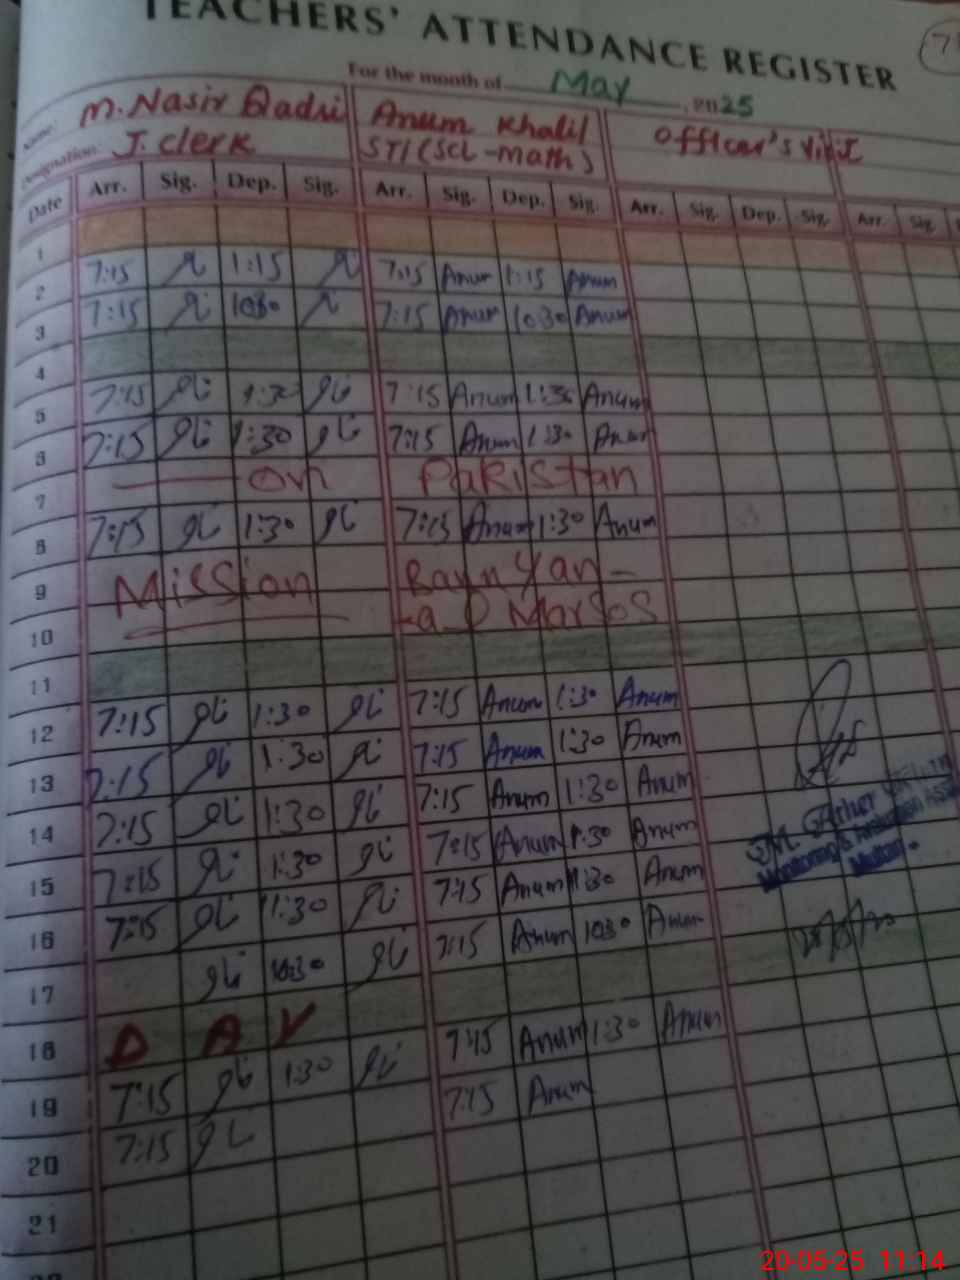 TEACHERS' ATTENDANCE REGISTER
For the month of May, 2025
Name: M. Nasir Qadri Anum Khalil Officer's Visit
Designation: J. Clerk STI (Sci-math)
Date Arr. Sig. Dep. Sig. Arr. Sig. Dep. Sig. Arr. Sig. Dep. Sig. Arr. Sig.
1
2 7:15 1:15 7:15 Anum 1:15 Anum
3 7:15 1030 7:15 Anum 1030 Anum
4
5 7:15 1:30 7:15 Anum 1:30 Anum
6 7:15 1:30 7:15 Anum 1:30 Anum
7 on Pakistan
8 7:15 1:30 7:15 Anum 1:30 Anum
9 Mission
10 Marsos
11
12 7:15 1:30 7:15 Anum 1:30 Anum
13 7:15 1:30 7:15 Anum 1:30 Anum
14 7:15 1:30 7:15 Anum 1:30 Anum
15 7:15 1:30 7:15 Anum 1:30 Anum
16 7:15 1:30 7:15 Anum 1:30 Anum
17 10:30 7:15 Anum 1030 Anum
18 D A Y
19 7:15 1:30 7:15 Anum 1:30 Anum
20 7:15 7:15 Anum
21
Monitoring &
Multan
20-05-25 11:14